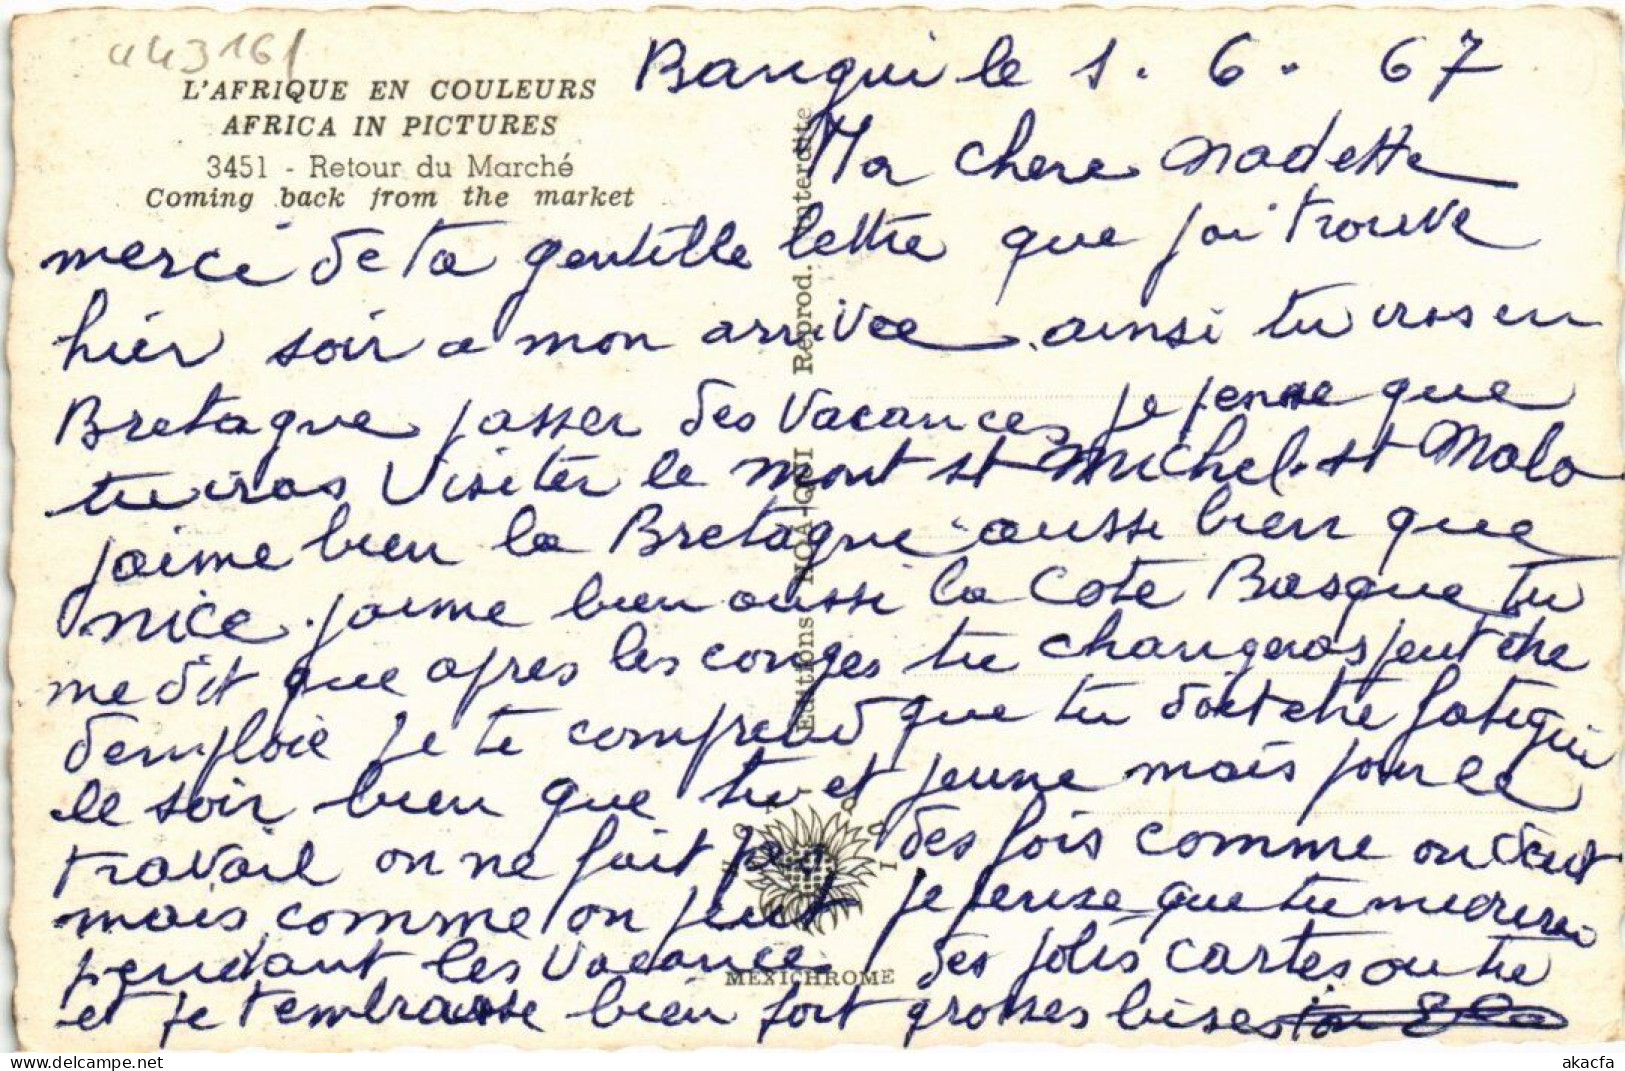 443161
L'AFRIQUE EN COULEURS
AFRICA IN PICTURES
3451 - Retour du Marché
Coming back from the market
Bangui le 1. 6. 67
Ma chere Madette
merci de ta gentille lettre que j'ai trouve
hier soir a mon arrivee ainsi tu iras en
Bretagne passer des vacances je pense que
tu iras visiter le mont st Michel. st Malo
j'aime bien la Bretagne aussi bien que
nice. j'aime bien aussi la Cote Basque tu
me dit que apres les conges tu changeras peut etre
d'emploie je te comprend que tu doit etre fatigui
le soir bien que tu et jeune mais pour le
travail on ne fait pas des fois comme on veut
mais comme on peut je pense que tu mecrirai
pendant les vacances des jolis cartes ou tu
et je t'embrasse bien fort grosses bises
Editions HOA-QUI Reprod. interdite
HOA QUI
MEXICHROME
akacfa